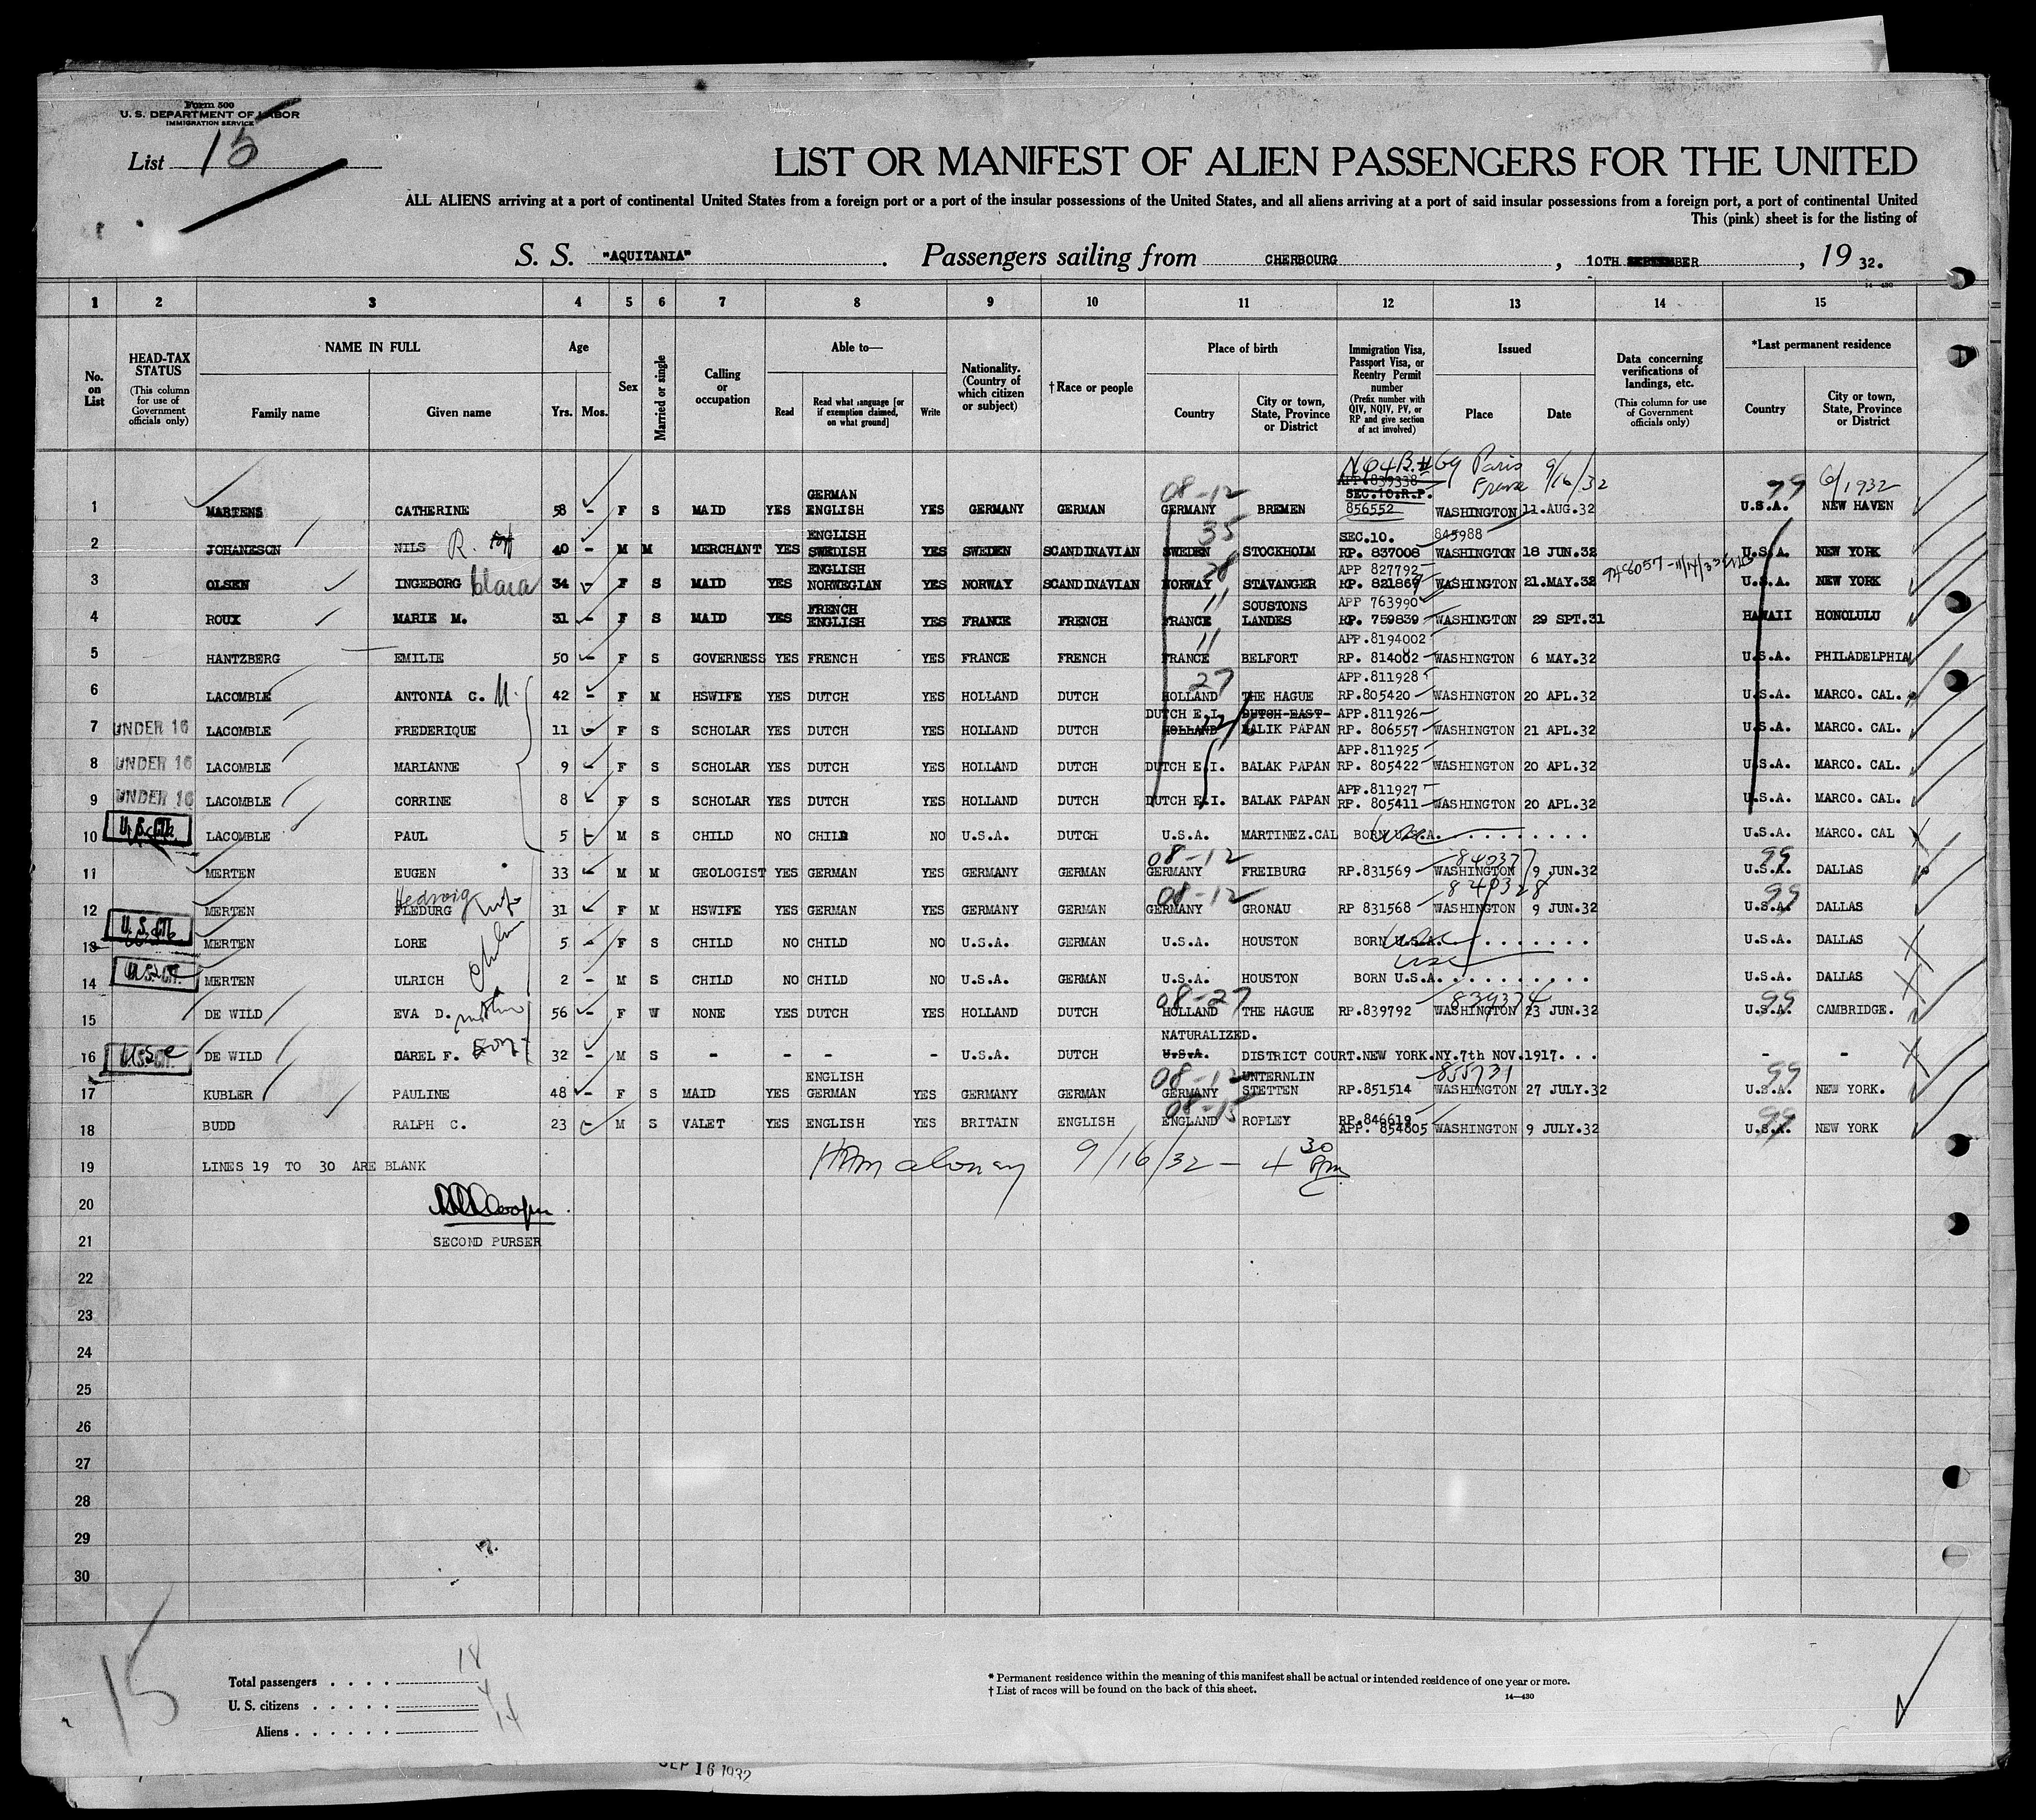 Form 500
U. S. DEPARTMENT OF LABOR
IMMIGRATION SERVICE
List 15
LIST OR MANIFEST OF ALIEN PASSENGERS FOR THE UNITED
ALL ALIENS arriving at a port of continental United States from a foreign port or a port of the insular possessions of the United States, and all aliens arriving at a port of said insular possessions from a foreign port, a port of continental United
This (pink) sheet is for the listing of
S. S. "AQUITANIA". Passengers sailing from CHERBOURG, 10TH SEPTEMBER, 19 32.
14-430
1 2 3 4 5 6 7 8 9 10 11 12 13 14 15
No. on List
HEAD-TAX STATUS (This column for use of Government officials only)
NAME IN FULL Family name Given name
Age Yrs. Mos.
Sex
Married or single
Calling or occupation
Able to— Read Read what language [or if exemption claimed, on what ground] Write
Nationality. (Country of which citizen or subject)
†Race or people
Place of birth Country City or town, State, Province or District
Immigration Visa, Passport Visa, or Reentry Permit number (Prefix number with QIV, NQIV, PV, or RP and give section of act involved)
Issued Place Date
Data concerning verifications of landings, etc. (This column for use of Government officials only)
*Last permanent residence Country City or town, State, Province or District
Paris France 9/16/32
APP.839338
GERMAN SEC.10.R.P. 08-12 99 6/1932
1 MARTENS CATHERINE 58 - F S MAID YES ENGLISH YES GERMANY GERMAN GERMANY BREMEN 856552 WASHINGTON 11.AUG.32 U.S.A. NEW HAVEN
ENGLISH 35 SEC.10. 845988
2 JOHANESON NILS R. 40 - M M MERCHANT YES SWEDISH YES SWEDEN SCANDINAVIAN SWEDEN STOCKHOLM RP. 837008 WASHINGTON 18 JUN.32 U.S.A. NEW YORK
ENGLISH 28 APP 827792
3 OLSEN INGEBORG Clara 34 - F S MAID YES NORWEGIAN YES NORWAY SCANDINAVIAN NORWAY STAVANGER RP. 821867 WASHINGTON 21.MAY.32 U.S.A. NEW YORK
FRENCH 11 SOUSTONS APP 763990
4 ROUX MARIE M. 31 - F S MAID YES ENGLISH YES FRANCE FRENCH FRANCE LANDES RP. 759839 WASHINGTON 29 SPT.31 HAWAII HONOLULU
11 APP.8194002
5 HANTZBERG EMILIE 50 - F S GOVERNESS YES FRENCH YES FRANCE FRENCH FRANCE BELFORT RP. 814002 WASHINGTON 6 MAY.32 U.S.A. PHILADELPHIA
27 APP.811928
6 LACOMBLE ANTONIA C. M. 42 - F M HSWIFE YES DUTCH YES HOLLAND DUTCH HOLLAND THE HAGUE RP.805420 WASHINGTON 20 APL.32 U.S.A. MARCO. CAL.
DUTCH E.I. DUTCH-EAST- APP.811926
7 UNDER 16 LACOMBLE FREDERIQUE 11 - F S SCHOLAR YES DUTCH YES HOLLAND DUTCH HOLLAND BALIK PAPAN RP. 806557 WASHINGTON 21 APL.32 U.S.A. MARCO. CAL.
APP.811925
8 UNDER 16 LACOMBLE MARIANNE 9 - F S SCHOLAR YES DUTCH YES HOLLAND DUTCH DUTCH E.I. BALAK PAPAN RP. 805422 WASHINGTON 20 APL.32 U.S.A. MARCO. CAL.
APP.811927
9 UNDER 16 LACOMBLE CORRINE 8 - F S SCHOLAR YES DUTCH YES HOLLAND DUTCH DUTCH E.I. BALAK PAPAN RP. 805411 WASHINGTON 20 APL.32 U.S.A. MARCO. CAL.
10 LACOMBLE PAUL 5 - M S CHILD NO CHILD NO U.S.A. DUTCH U.S.A. MARTINEZ.CAL BORN U.S.A. U.S.A. MARCO. CAL
08-12 840377 99
11 MERTEN EUGEN 33 - M M GEOLOGIST YES GERMAN YES GERMANY GERMAN GERMANY FREIBURG RP.831569 WASHINGTON 9 JUN.32 U.S.A. DALLAS
Hedwig wife 08-12 840328 99
12 MERTEN FLEDURG 31 - F M HSWIFE YES GERMAN YES GERMANY GERMAN GERMANY GRONAU RP 831568 WASHINGTON 9 JUN.32 U.S.A. DALLAS
13 MERTEN LORE 5 - F S CHILD NO CHILD NO U.S.A. GERMAN U.S.A. HOUSTON BORN U.S.A. U.S.A. DALLAS
14 MERTEN ULRICH 2 - M S CHILD NO CHILD NO U.S.A. GERMAN U.S.A. HOUSTON BORN U.S.A. U.S.A. DALLAS
08-27 839374 99
15 DE WILD EVA D. mother 56 - F W NONE YES DUTCH YES HOLLAND DUTCH HOLLAND THE HAGUE RP.839792 WASHINGTON 23 JUN.32 U.S.A. CAMBRIDGE.
NATURALIZED.
16 DE WILD CAREL F. son 32 - M S - - - - U.S.A. DUTCH U.S.A. DISTRICT COURT.NEW YORK.NY.7th NOV.1917. . . - -
ENGLISH 08-12 UNTERNLIN 855731 99
17 KUBLER PAULINE 48 - F S MAID YES GERMAN YES GERMANY GERMAN GERMANY STETTEN RP.851514 WASHINGTON 27 JULY.32 U.S.A. NEW YORK.
08-15 RP.846619 99
18 BUDD RALPH C. 23 - M S VALET YES ENGLISH YES BRITAIN ENGLISH ENGLAND ROPLEY APP. 854605 WASHINGTON 9 JULY.32 U.S.A. NEW YORK
19 LINES 19 TO 30 ARE BLANK 9/16/32 - 4 30 pm
20
21 SECOND PURSER
22
23
24
25
26
27
28
29
30
15
Total passengers . . . . 18
U. S. citizens . . . . . 4
Aliens . . . . . . 14
* Permanent residence within the meaning of this manifest shall be actual or intended residence of one year or more.
† List of races will be found on the back of this sheet.
14—430
SEP 16 1932